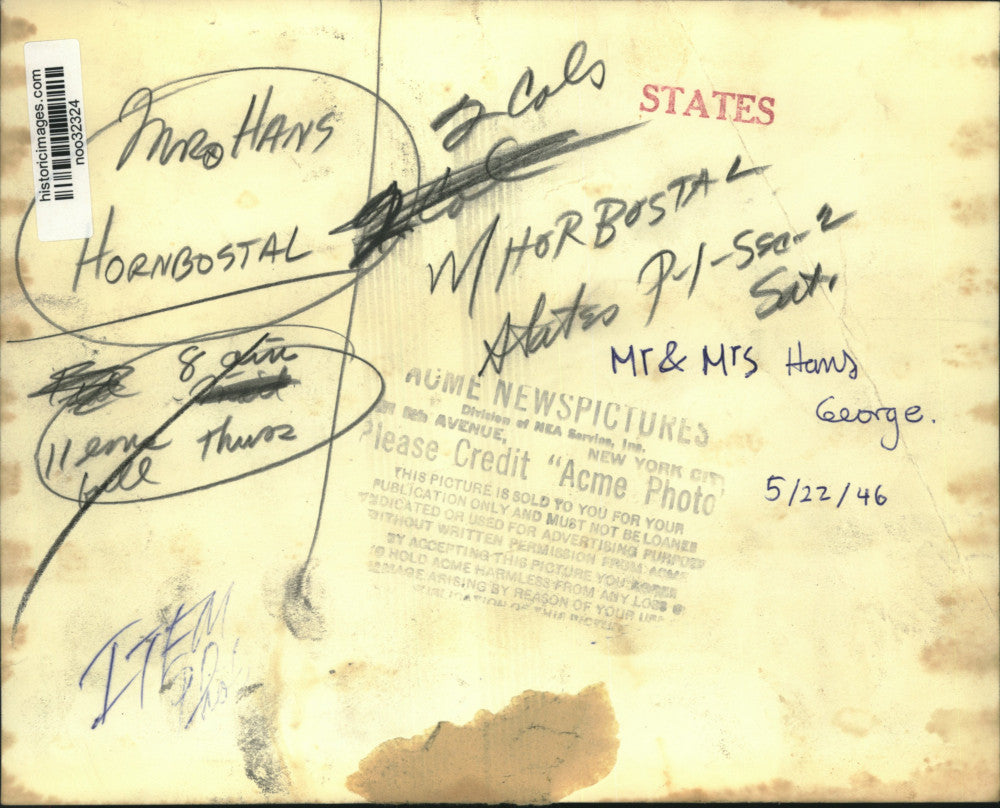 historicimages.com
noo32324
Mr. HANS
HORNBOSTAL
2 Cols
STATES
W/ HORBOSTAL
States P-1-Sec-2
Sat.
Mr & Mrs Hans
George.
5/22/46
8
11 Thurs
ACME NEWSPICTURES
Division of NEA Service, Inc.
AVENUE, NEW YORK CITY
Please Credit "Acme Photo"
THIS PICTURE IS SOLD TO YOU FOR YOUR
PUBLICATION ONLY AND MUST NOT BE LOANED
OR USED FOR ADVERTISING PURPOSES
WITHOUT WRITTEN PERMISSION FROM ACME
BY ACCEPTING THIS PICTURE YOU
HOLD ACME HARMLESS FROM ANY LOSS
ARISING BY REASON OF YOUR
PUBLICATION OF THIS PICTURE
ITEM